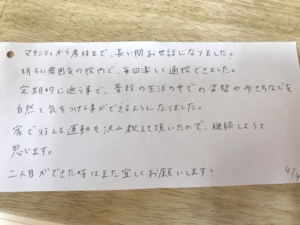 マタニティから産後まで、長い間お世話になりました。
明るい雰囲気の院内で、毎回楽しく通院できました。
定期的に通う事で、普段の生活の中での姿勢や歩き方などを
自然と気をつける事ができるようになりました。
家で行える運動も沢山教えて頂いたので、継続しようと
思います。
二人目ができた時はまた宜しくお願いします!